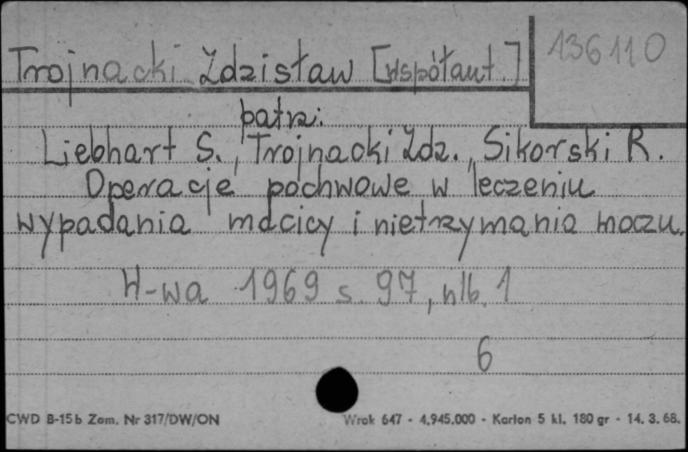 Trojnacki Zdzisław [współaut.]
136110
patrz:
Liebhart S., Trojnacki Zdz., Sikorski R.
Operacje pochwowe w leczeniu
wypadania macicy i nietrzymania moczu.
W-wa 1969 s. 97, nlb. 1
6
CWD B-15b Zam. Nr 317/DW/ON Wrok 647 - 4.945.000 - Karton 5 kl. 180 gr - 14. 3. 68.